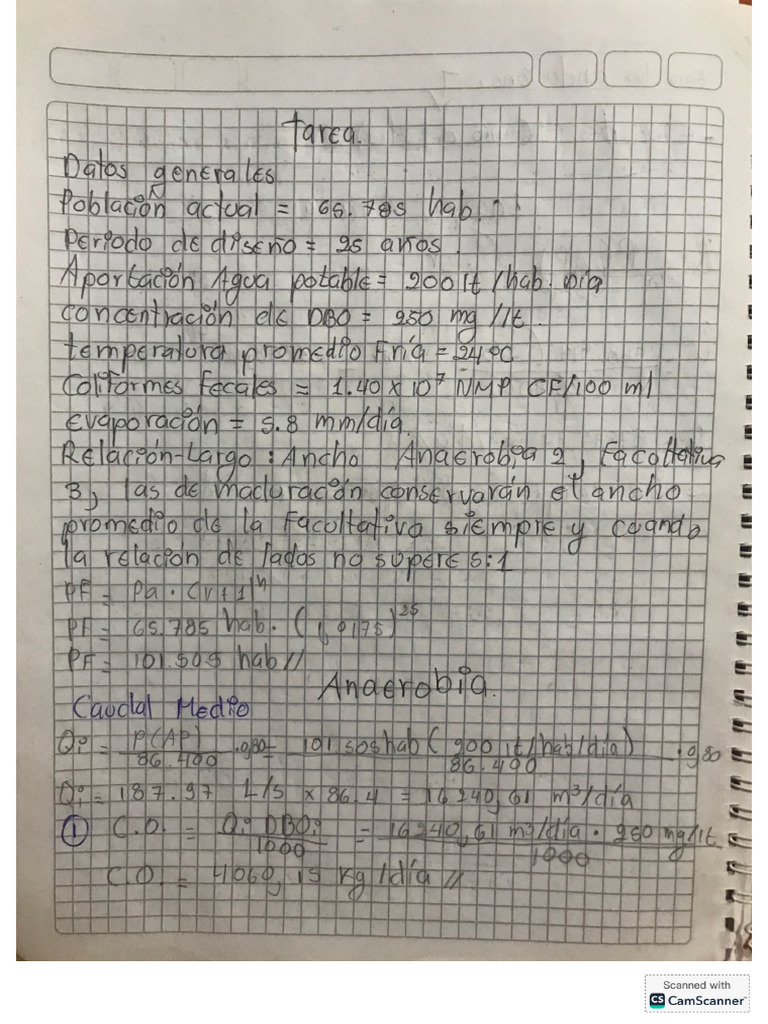 Tarea.
Datos generales
Población actual = 65.785 hab.
Periodo de diseño = 25 años.
Aportación Agua potable = 200 lt/hab. Dia
Concentración de DBO = 250 mg/lt.
temperatura promedio Fría = 24°C
Coliformes fecales = 1.40 x 10⁷ NMP CF/100 ml
Evaporación = 5.8 mm/día.
Relación-Largo: Ancho Anaerobia 2, Facultativa
3, las de maduración conservarán el ancho
promedio de la Facultativa siempre y cuando
la relación de lados no supere 5:1
PF = Pa · (r+1)ⁿ
PF = 65.785 hab. (1,0175)²⁵
PF = 101.505 hab//
Anaerobia.
Caudal Medio
Qi = P(AP)/86.400 · 0,80 = 101.505 hab (200 lt/hab/día)/86.400 · 0,80
Qi = 187.97 L/s x 86.4 = 16240,61 m³/día
① C.O. = Qi DBOi/1000 = 16240,61 m3/día · 250 mg/lt/1000
C.O. = 4060,15 kg/día //
Scanned with
CS CamScanner